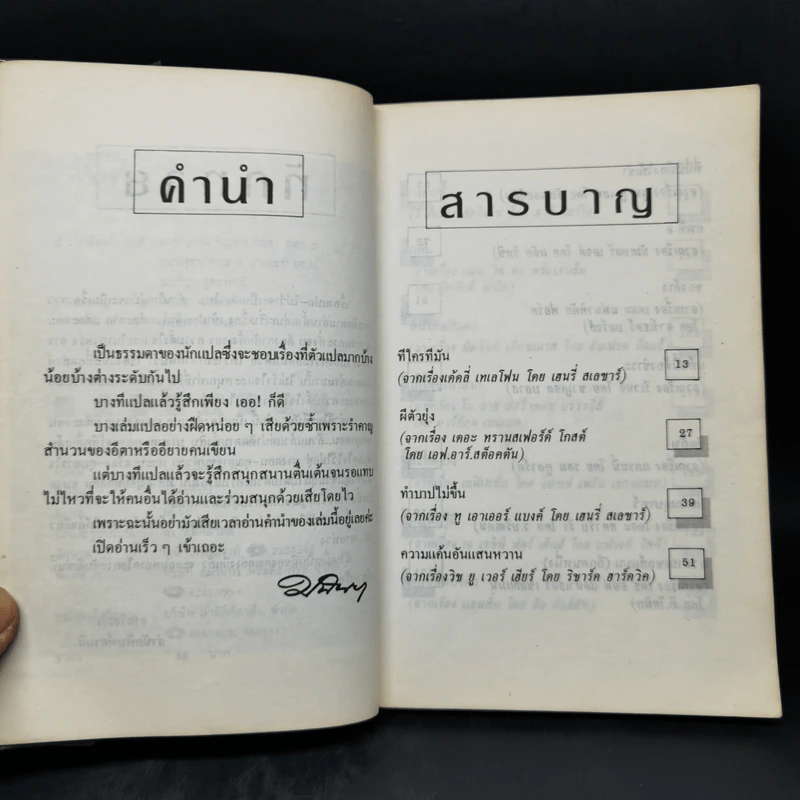 คำนำ
เป็นธรรมดาของนักแปลซึ่งจะชอบเรื่องที่ตัวแปลมากบ้าง
น้อยบ้างต่างระดับกันไป
บางทีแปลแล้วรู้สึกเพียง เออ! ก็ดี
บางเล่มแปลอย่างฝืดหน่อย ๆ เสียด้วยซ้ำเพราะรำคาญ
สำนวนของอีตาหรืออียายคนเขียน
แต่บางทีแปลแล้วจะรู้สึกสนุกสนานตื่นเต้นจนรอแทบ
ไม่ไหวที่จะให้คนอื่นได้อ่านและร่วมสนุกด้วยเสียโดยไว
เพราะฉะนั้นอย่ามัวเสียเวลาอ่านคำนำของเล่มนี้อยู่เลยค่ะ
เปิดอ่านเร็ว ๆ เข้าเถอะ
สารบาญ
ทีใครทีมัน 13
(จากเรื่องเด้ดลี่ เทเลโฟน โดย เฮนรี่ สเลซาร์)
ผีตัวยุ่ง 27
(จากเรื่อง เดอะ ทรานสเฟอร์ด์ โกสต์
โดย เอฟ.อาร์.สต็อคตัน)
ทำบาปไม่ขึ้น 39
(จากเรื่อง ทู เอาเออร์ แบงค์ โดย เฮนรี่ สเลซาร์)
ความแค้นอันแสนหวาน 51
(จากเรื่องวิช ยู เวอร์ เฮียร์ โดย ริชาร์ด ฮาร์ดวิค)